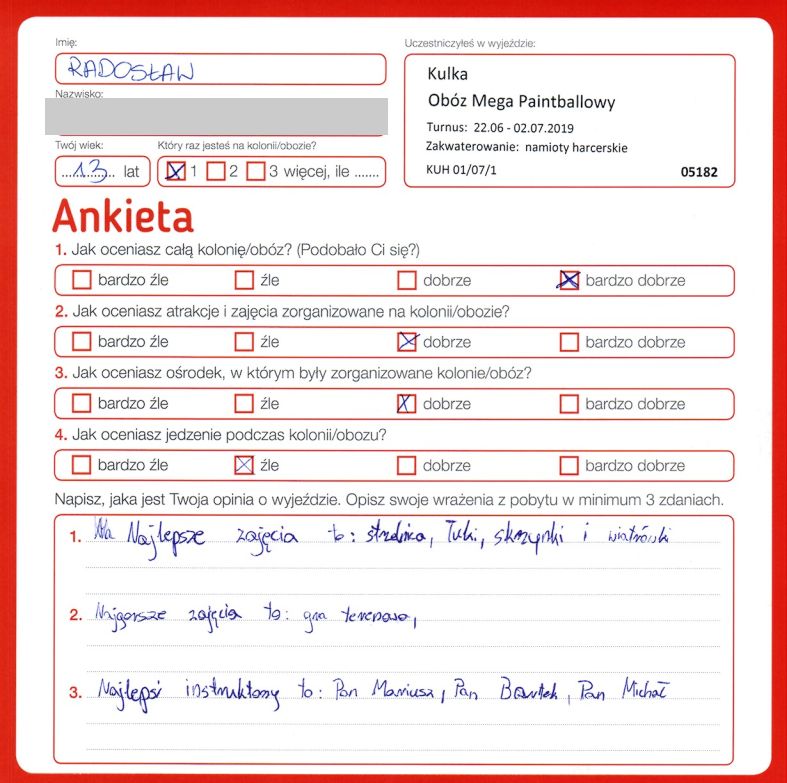 Imię:
RADOSŁAW
Nazwisko:
Twój wiek:
...13... lat
Który raz jesteś na kolonii/obozie?
1 2 3 więcej, ile .......
Uczestniczyłeś w wyjeździe:
Kulka
Obóz Mega Paintballowy
Turnus: 22.06 - 02.07.2019
Zakwaterowanie: namioty harcerskie
KUH 01/07/1 05182
Ankieta
1. Jak oceniasz całą kolonię/obóz? (Podobało Ci się?)
bardzo źle źle dobrze bardzo dobrze
2. Jak oceniasz atrakcje i zajęcia zorganizowane na kolonii/obozie?
bardzo źle źle dobrze bardzo dobrze
3. Jak oceniasz ośrodek, w którym były zorganizowane kolonie/obóz?
bardzo źle źle dobrze bardzo dobrze
4. Jak oceniasz jedzenie podczas kolonii/obozu?
bardzo źle źle dobrze bardzo dobrze
Napisz, jaka jest Twoja opinia o wyjeździe. Opisz swoje wrażenia z pobytu w minimum 3 zdaniach.
1. Najlepsze zajęcia to: strzelnica, Łuki, skrzynki i wiatrówki
2. Najgorsze zajęcia to: gra terenowa,
3. Najlepsi instruktorzy to: Pan Mariusz, Pan Bartek, Pan Michał